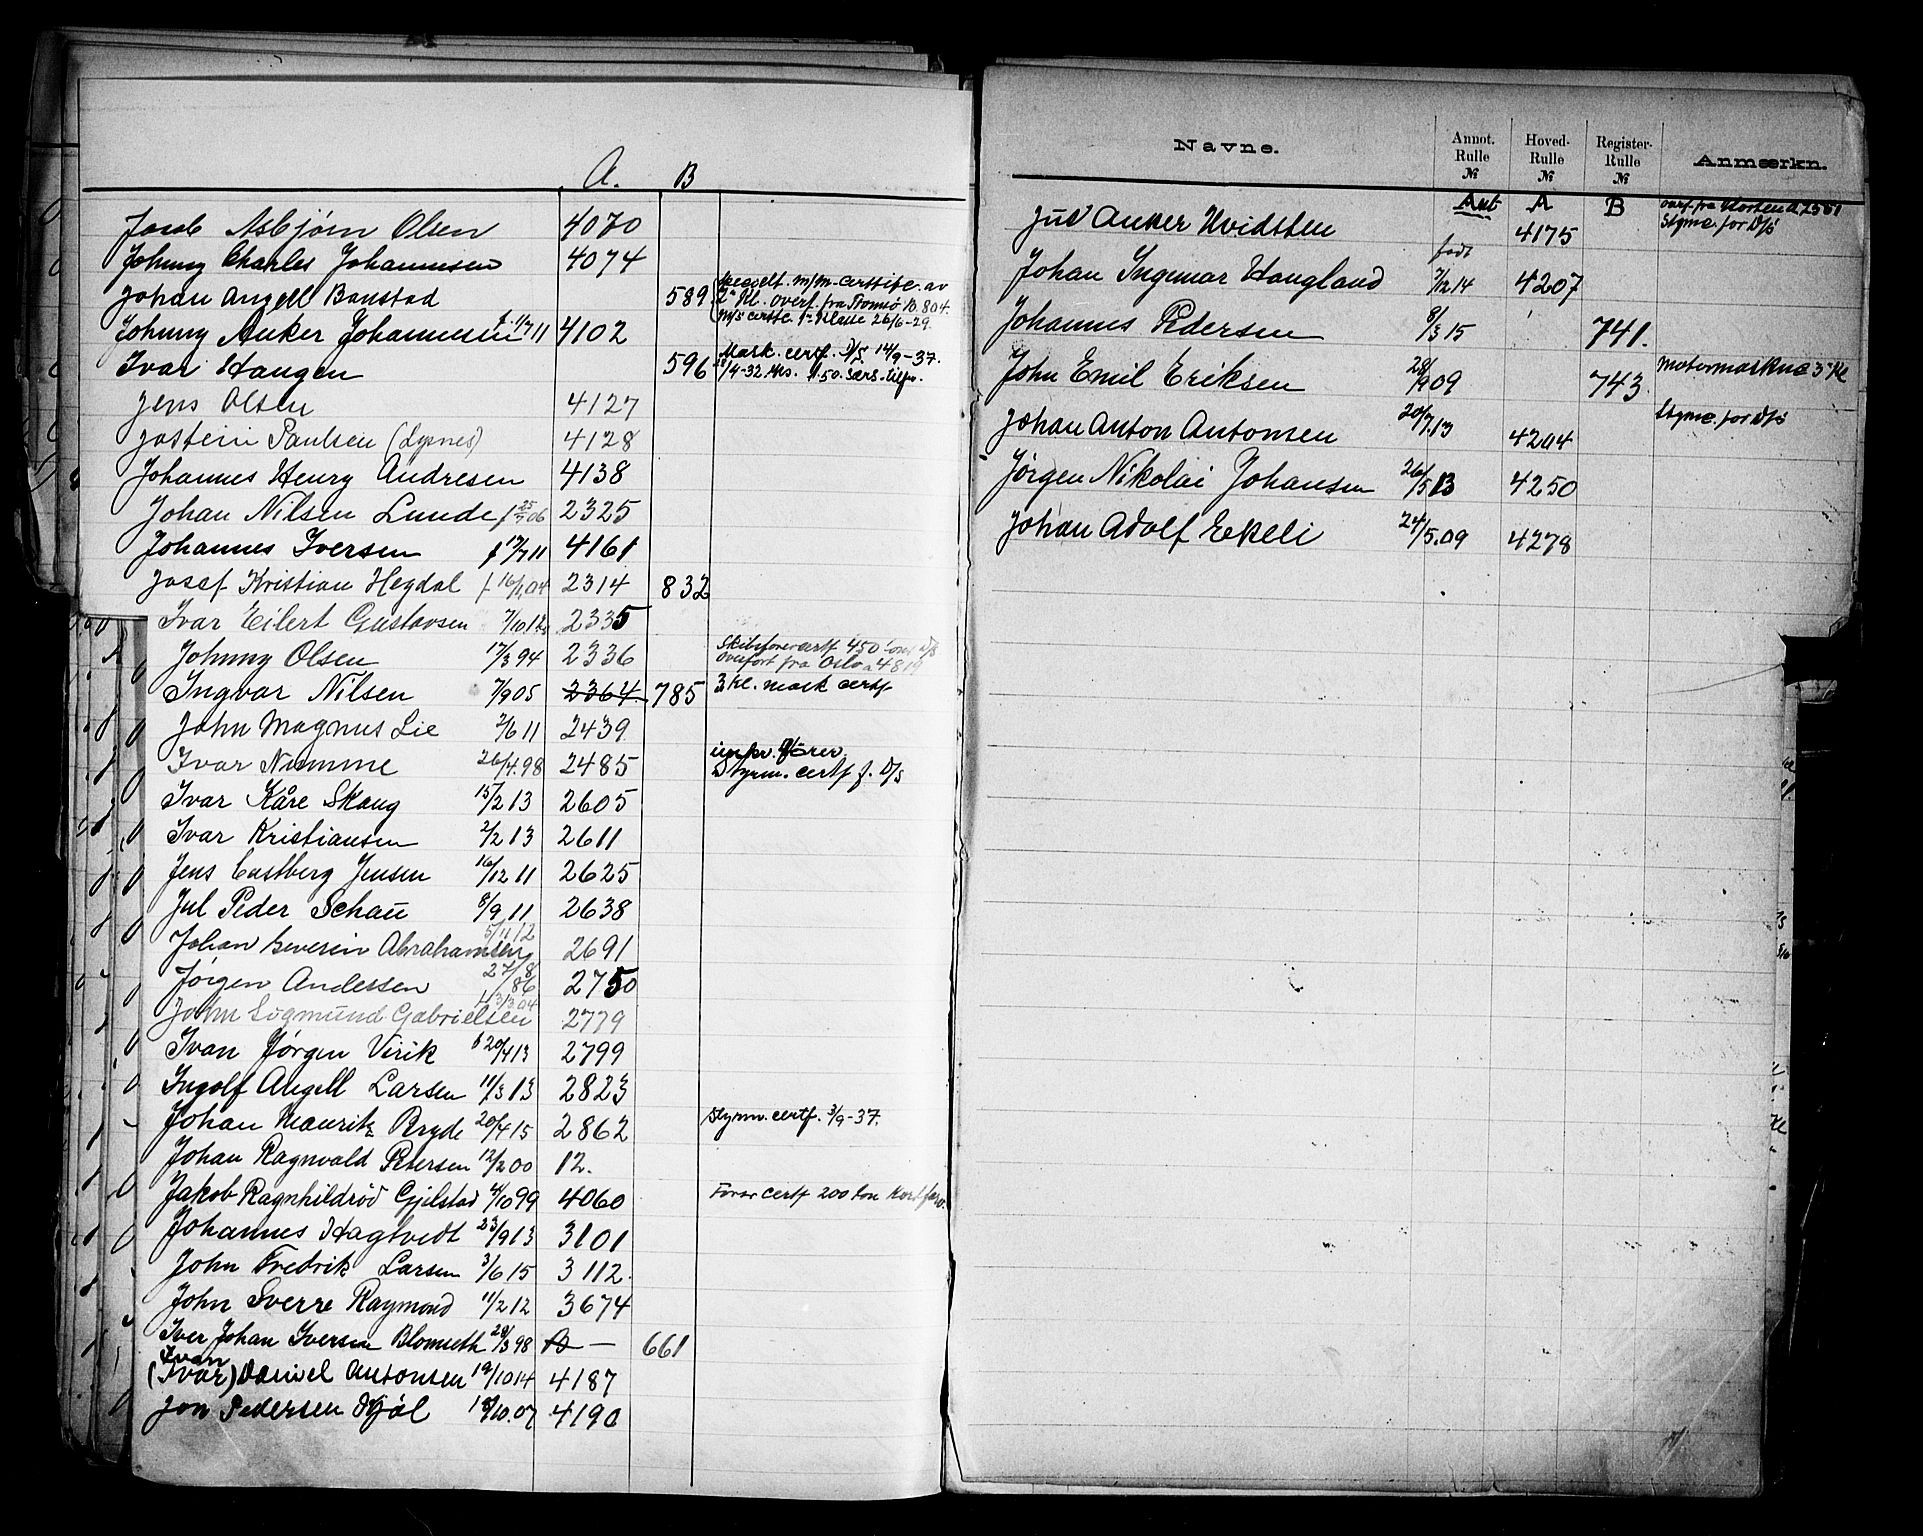 A. B
Jacob Asbjørn Olsen 4070
Johnny Charles Johannesen 4074
Johan Angell Banstad 589 m/m. certific. av
2' Kl. overf. fra Tromsø B. 804.
m/s certfc. 1ste Klasse 26/6-29.
Johnny Anker Johannesen f. 1/7 11 4102
Ivar Haugen 596 Mask. certf. D/S. 14/9-37.
Jens Olsen 4127
Jostein Paulsen (Lysnes) 4128
Johannes Henry Andresen 4138
Johan Nilsen Lunde f 25/7 06 2325
Johannes Iversen f 17/7 11 4161
Josef Kristian Hegdal f 16/1 04 2314 832
Ivar Eilert Gustavsen 7/10 12 2335
Johnny Olsen 17/3 94 2336 Skibsførercertf 450 tons D/S
overført fra Oslo a 4819
Ingvar Nilsen 7/9 05 2364 785 3 kl. mask certf
John Magnus Lie 2/6 11 2439
Ivar Numme 26/4.98 2485
Styrm. certf f. D/S
Ivar Kåre Skaug 15/2 13 2605
Ivar Kristiansen 2/2 13 2611
Jens Castberg Jensen 16/12 11 2625
Jul Peder Schau 8/9 11 2638
Johan Severin Abrahamsen 5/11 12 2691
Jørgen Andersen 27/8 86 2750
John Sigmund Gabrielsen 3/3 04 2779
Ivan Jørgen Virik f 20/4 13 2799
Ingolf Angell Larsen 11/3 13 2823
Johan Mauritz Bryde 20/4 15 2862 Styrm. certf. 3/9-37.
Johan Ragnvald Petersen 12/2 00 12.
Jakob Ragnhildrød Gjelstad 4/10 99 4060 Fører certf 200 ton Kortfarv.
Johannes Hagtvedt 23/9 13 3101
John Fredrik Larsen 3/6 15 3112.
John Sverre Raymond 11/2 12 3674
Iver Johan Iversen Blomseth 28/3 98 B — 661
Ivan
(Ivar) Daniel Antonsen 19/10 14 4187
Jon Pedersen Kjøl 18/10.07 4190
Navne. Annot. Rulle № Hoved-Rulle № Register-Rulle № Anmærkn.
Ant A B
Jul Anker Hvidsten 4175 overf. fra Horten A 2581
Styrme. for D/S
født
Johan Ingemar Haugland 7/12 14 4207
Johannes Pedersen 8/3 15 741.
John Emil Eriksen 28/9 09 743 Motormaskne 3' Kl
Johan Anton Antonsen 20/7.13 4204 Styrme. for D/S
Jørgen Nikolai Johansen 26/5 13 4250
Johan Adolf Eekeli 24/5.09 4278